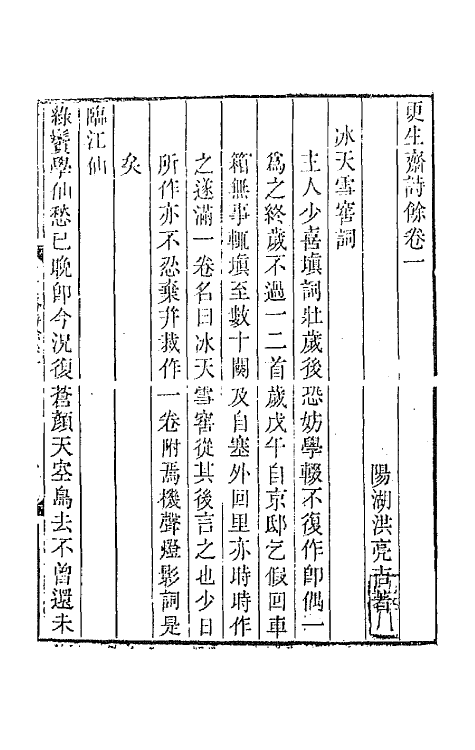 更生齋詩餘卷一
陽湖洪亮吉著
冰天雪窖詞
主人少喜填詞壯歲後恐妨學輟不復作卽偶一
爲之終歲不過一二首歲戊午自京邸乞假回車
箱無事輒填至數十闋及自塞外回里亦時時作
之遂滿一卷名曰冰天雪窖從其後言之也少日
所作亦不忍棄并裁作一卷附焉機聲燈影詞是
矣
臨江仙
綠鬢學仙愁已晚卽今況復蒼顏天空鳥去不曾還未